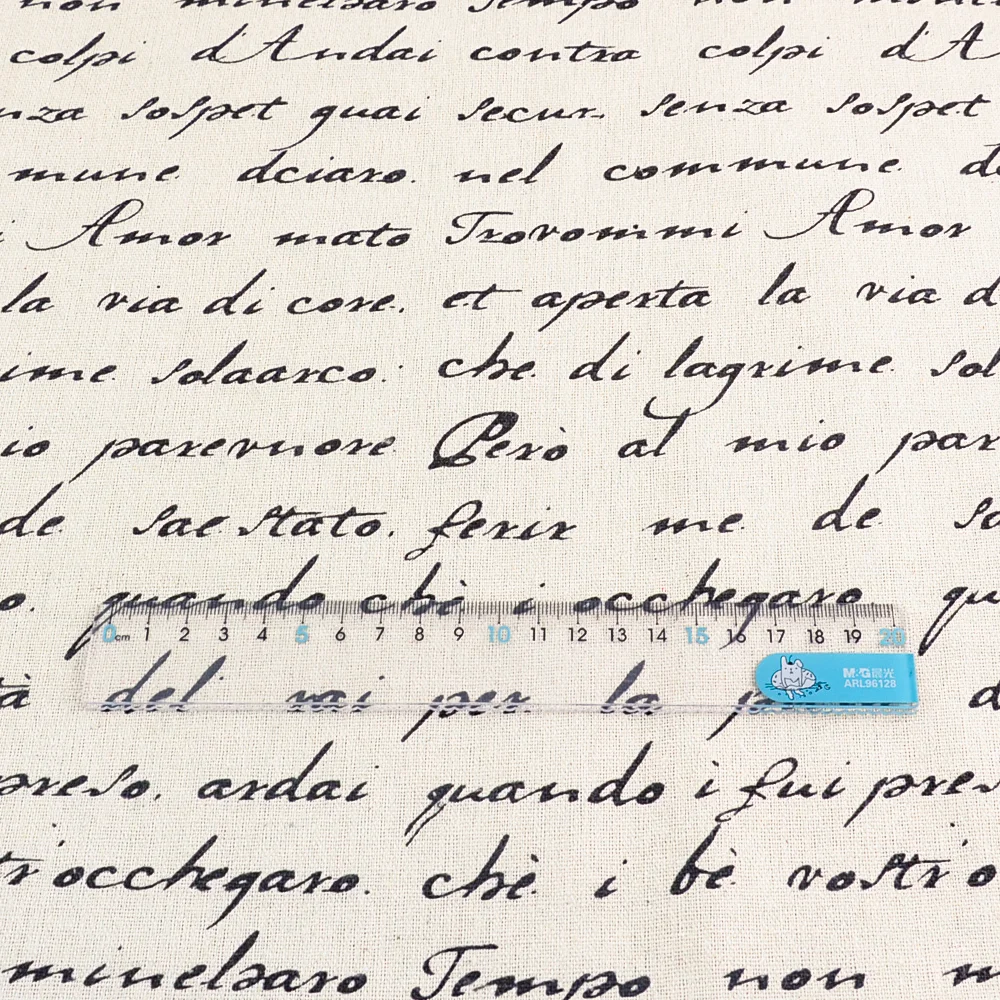 colpi d'Andai contra colpi d'A
nza sospet quai secur. senza sospet
mune dciaro. nel commune d
i Amor mato Trovommi Amor
la via di core. et aperta la via d
ime solaarco: che di lagrime sol
io parevuore Però al mio par
de saestato. ferir me de sa
o. quando chè i occhegaro qu
0 cm 1 2 3 4 5 6 7 8 9 10 11 12 13 14 15 16 17 18 19 20
à del rai per la d
M&G晨光
ARL96128
preso. ardai quando i fui pres
tr'occhegaro. chè i bè vostr'o
minelsaro Tempo non m